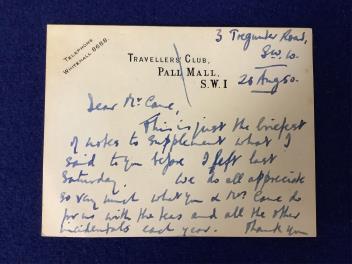 TELEPHONE
WHITEHALL 8688.
TRAVELLERS' CLUB,
PALL MALL,
S.W. I
3 Tregunter Road,
S.W.10.
28 Aug 50.
Dear Mr Cane,
This is just the briefest
of notes to supplement what I
said to you before I left last
Saturday. We do all appreciate
so very much what you & Mrs Cane do
for us with the teas and all the other
incidentals each year. Thank you